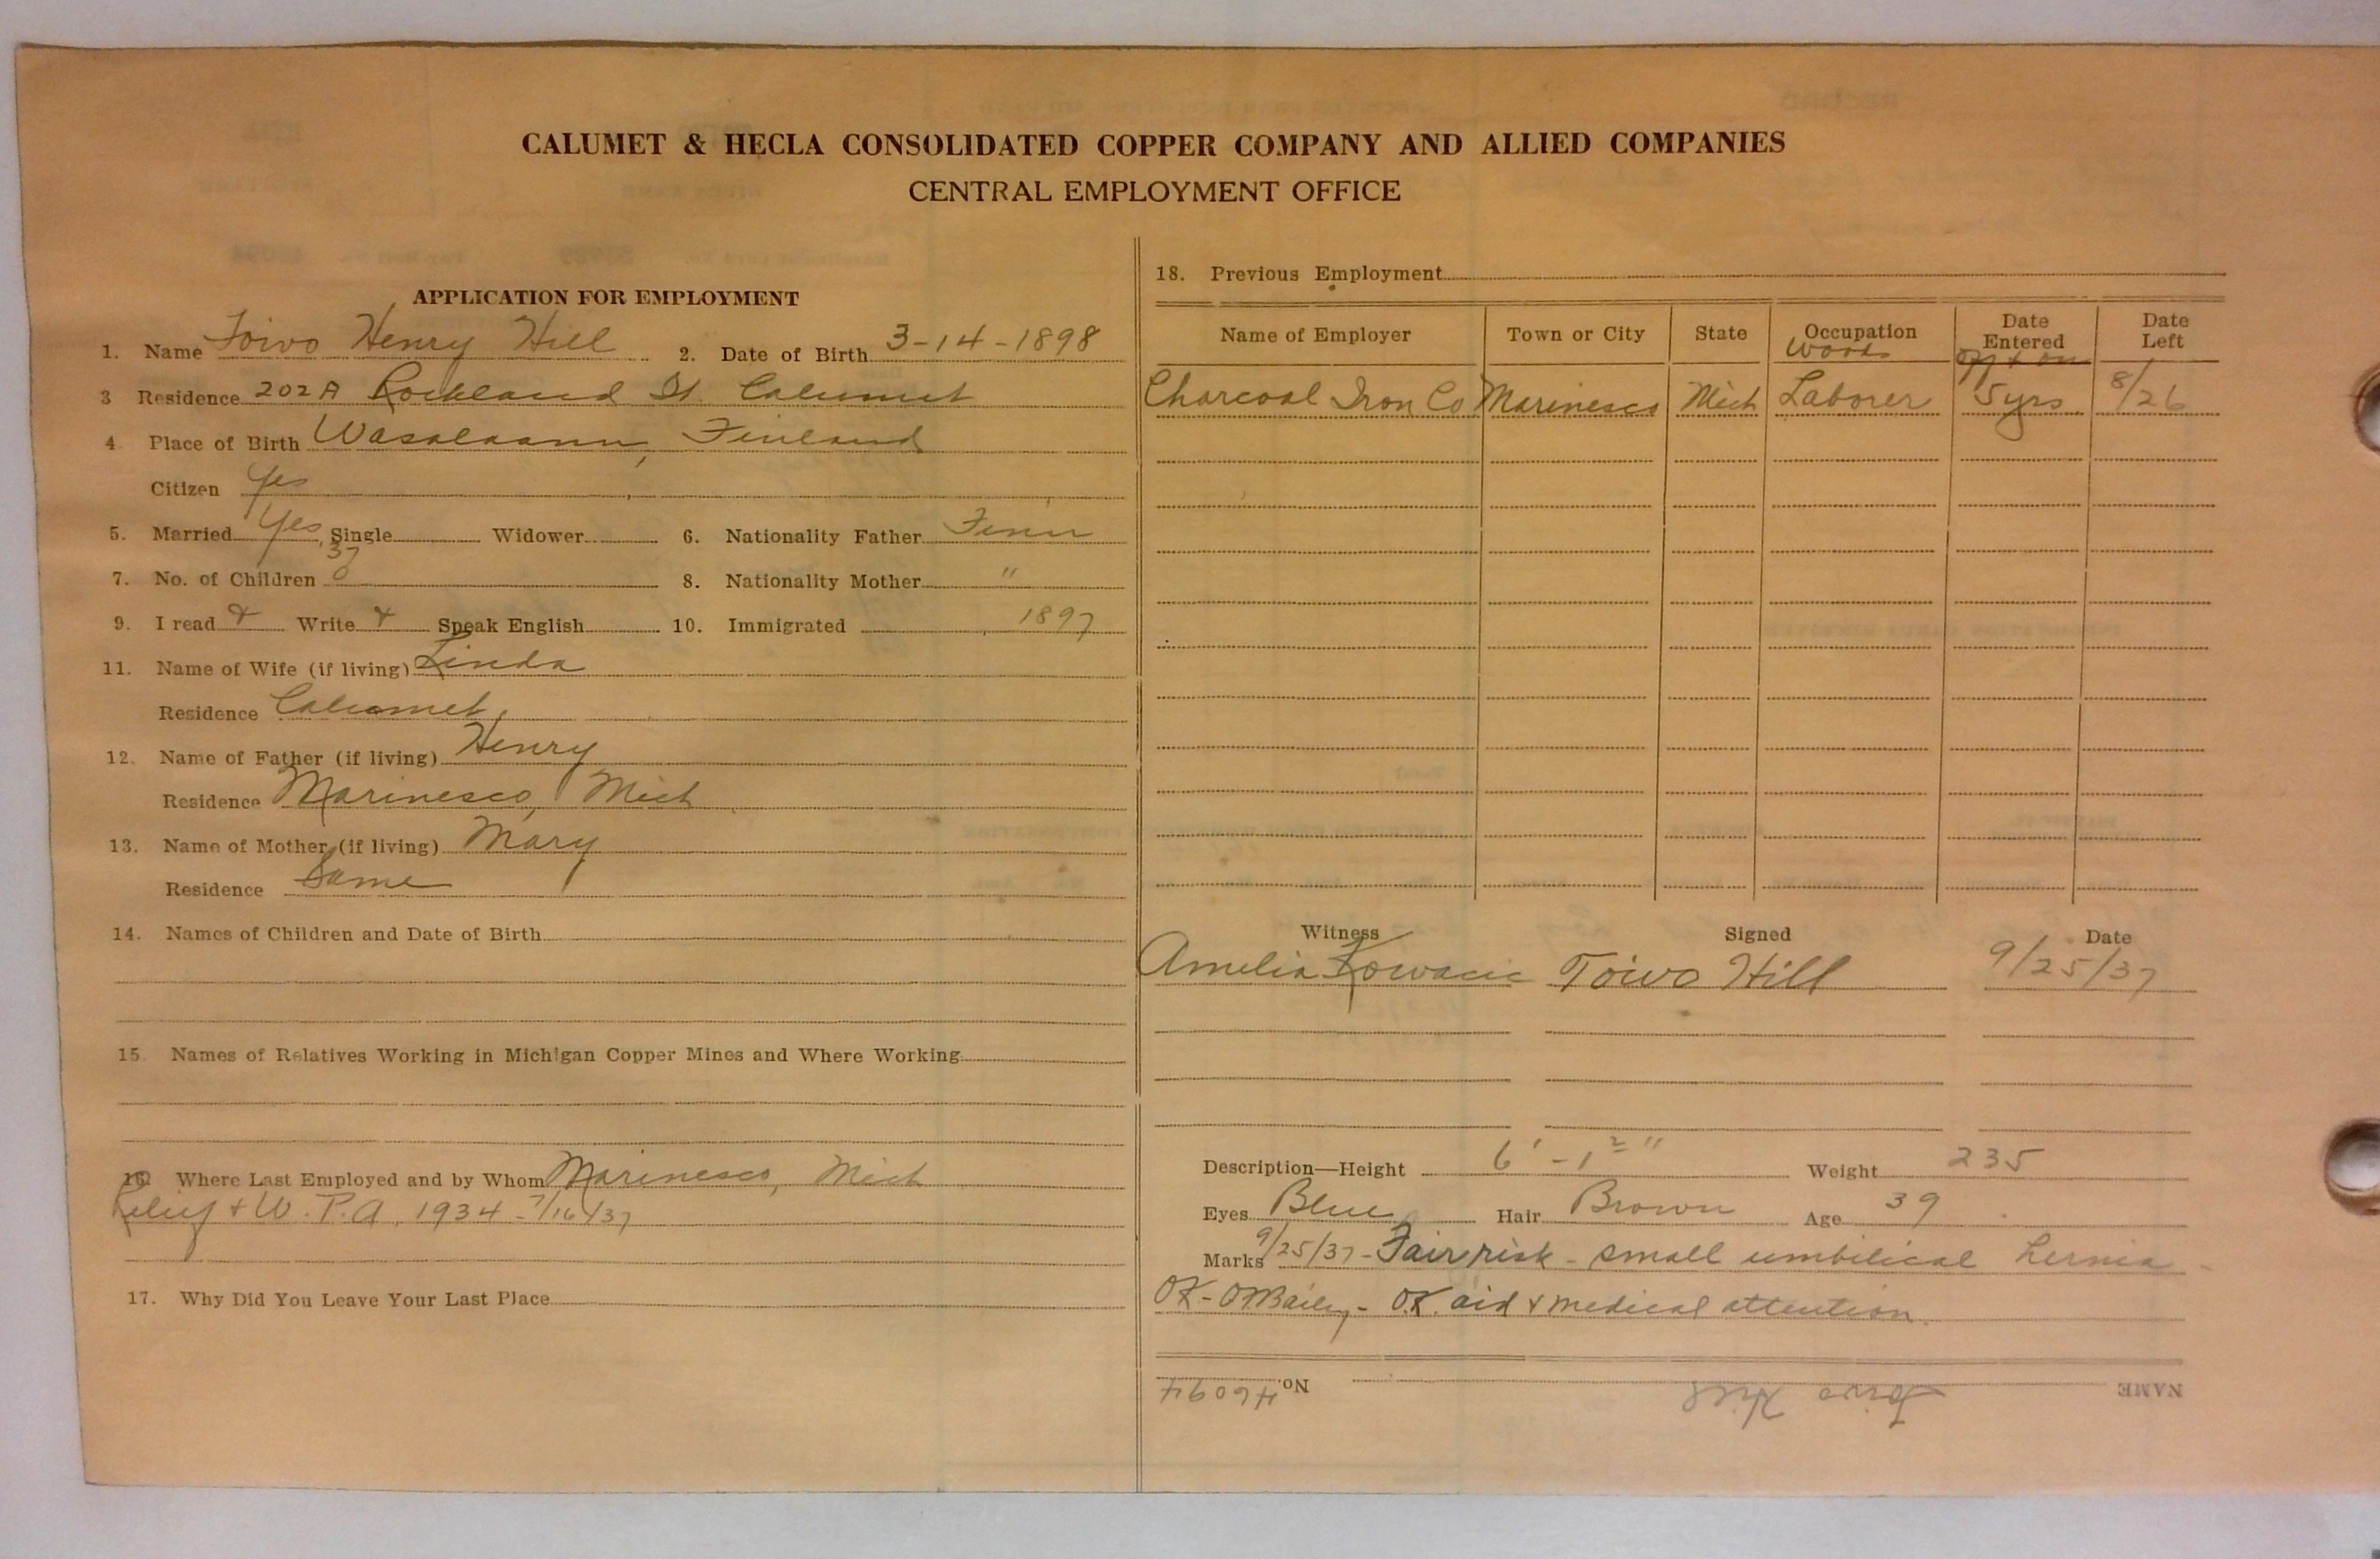 CALUMET & HECLA CONSOLIDATED COPPER COMPANY AND ALLIED COMPANIES
CENTRAL EMPLOYMENT OFFICE
APPLICATION FOR EMPLOYMENT
1. Name Toivo Henry Hill 2. Date of Birth 3-14-1898
3 Residence 202 A Rockland St. Calumet
4. Place of Birth Wasalaani, Finland
Citizen Yes
5. Married Yes Single Widower 6. Nationality Father Finn
37
7. No. of Children 0 8. Nationality Mother "
9. I read + Write + Speak English 10. Immigrated 1897
11. Name of Wife (if living) Linda
Residence Calumet
12. Name of Father (if living) Henry
Residence Marinesco, Mich
13. Name of Mother (if living) Mary
Residence Same
14. Names of Children and Date of Birth
15. Names of Relatives Working in Michigan Copper Mines and Where Working
16. Where Last Employed and by Whom Marinesco, Mich
Relief + W.P.A. 1934 - 7/16/37
17. Why Did You Leave Your Last Place
18. Previous Employment
Name of Employer Town or City State Occupation Date Entered Date Left
Woods off & on
Charcoal Iron Co Marinesco Mich Laborer 5 yrs 8/26
Witness Signed Date
Amelia Kowacic Toivo Hill 9/25/37
Description—Height 6' - 1 2" Weight 235
Eyes Blue Hair Brown Age 39
Marks 9/25/37 - Fair risk - small umbilical hernia -
OK - OMBailey - O.K. aid & medical attention.
NAME Toivo Hill No. 46094